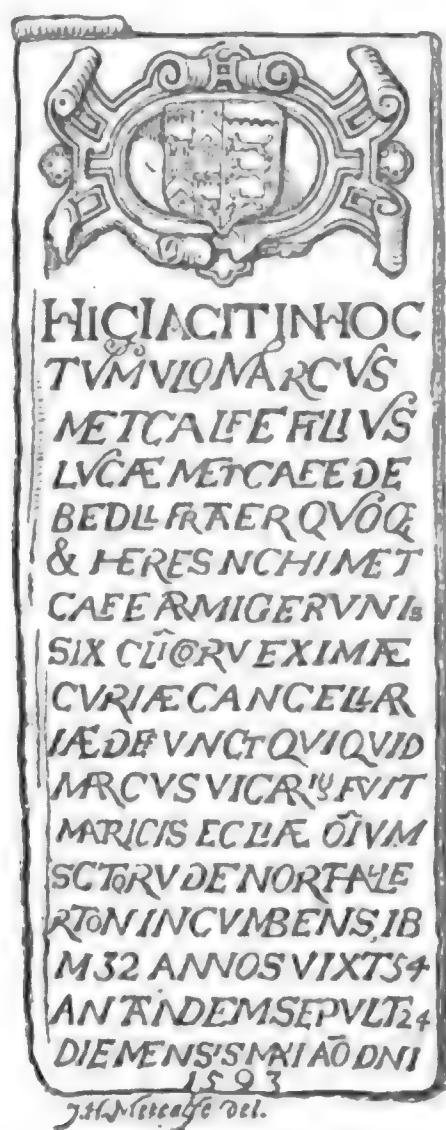 HIC IACIT IN HOC
TVMVLO MARCVS
METCALFE FILIVS
LVCÆ METCAFE DE
BEDLL FRATER QVOQE
& HERES NCHI MET
CAFE ARMIGER VNIB
SIX CLĪCORV EXIMÆ
CVRIÆ CANCELLAR
IÆ DEFVNCT QVI QVID
MARCVS VICARIV FVIT
MARICIS ECLIÆ OĪVM
SCTORV DE NORTHALLE
RTON INCVMBENS IB
M 32 ANNOS VIXT 54
AN TANDEM SEPVLT 24
DIE MENSIS MAII AŌ DNI
1593
J.H. Metcalfe del.